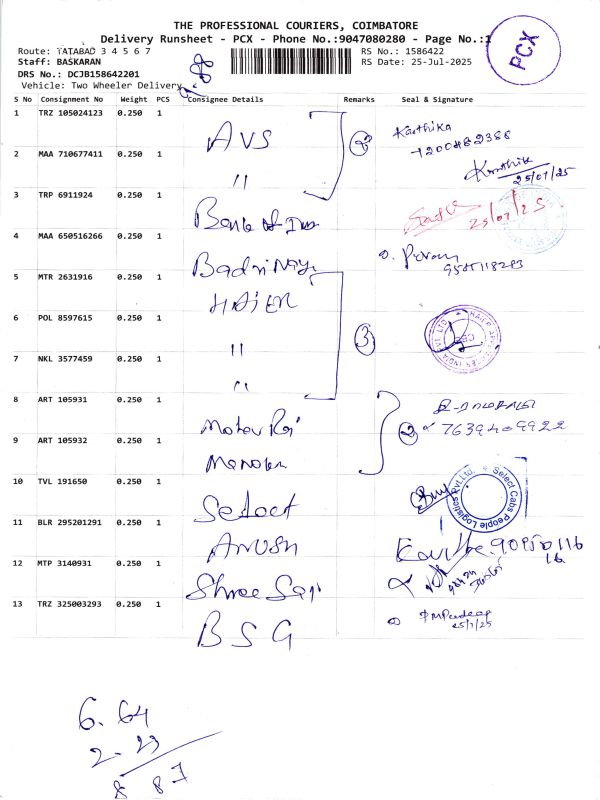 THE PROFESSIONAL COURIERS, COIMBATORE
Delivery Runsheet - PCX - Phone No.:9047080280 - Page No.:1
PCX
Route: TATABAD 3 4 5 6 7
RS No.: 1586422
Staff: BASKARAN
RS Date: 25-Jul-2025
DRS No.: DCJB158642201
Vehicle: Two Wheeler Delivery
S No Consignment No Weight PCS Consignee Details Remarks Seal & Signature
1 TRZ 105024123 0.250 1 AVS Karthika
2 MAA 710677411 0.250 1 " Karthika
25/07/25
3 TRP 6911924 0.250 1 Bank of
25/07/25
4 MAA 650516266 0.250 1
5 MTR 2631916 0.250 1 HAIER
6 POL 8597615 0.250 1 "
3
7 NKL 3577459 0.250 1 "
8 ART 105931 0.250 1
2
9 ART 105932 0.250 1
10 TVL 191650 0.250 1 Select
Select Cabs People Logistics Pvt.Ltd.
11 BLR 295201291 0.250 1
12 MTP 3140931 0.250 1 Shree
13 TRZ 325003293 0.250 1 BSG
25/7/25
6.64
2.23
8 87